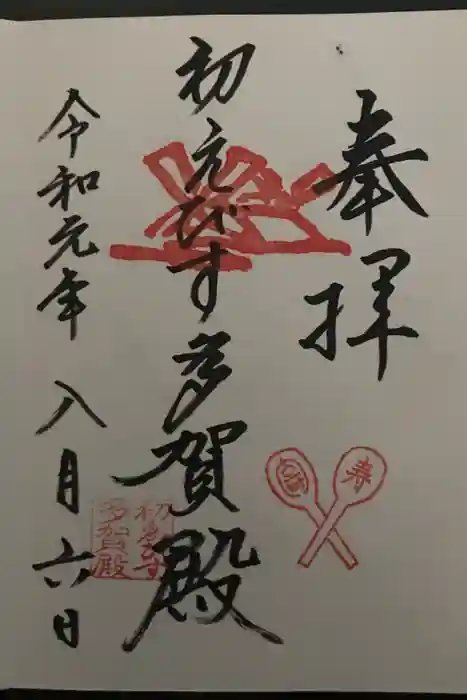 奉拝
初えびす多賀殿
令和元年八月六日
寿
初ゑびす
多賀殿